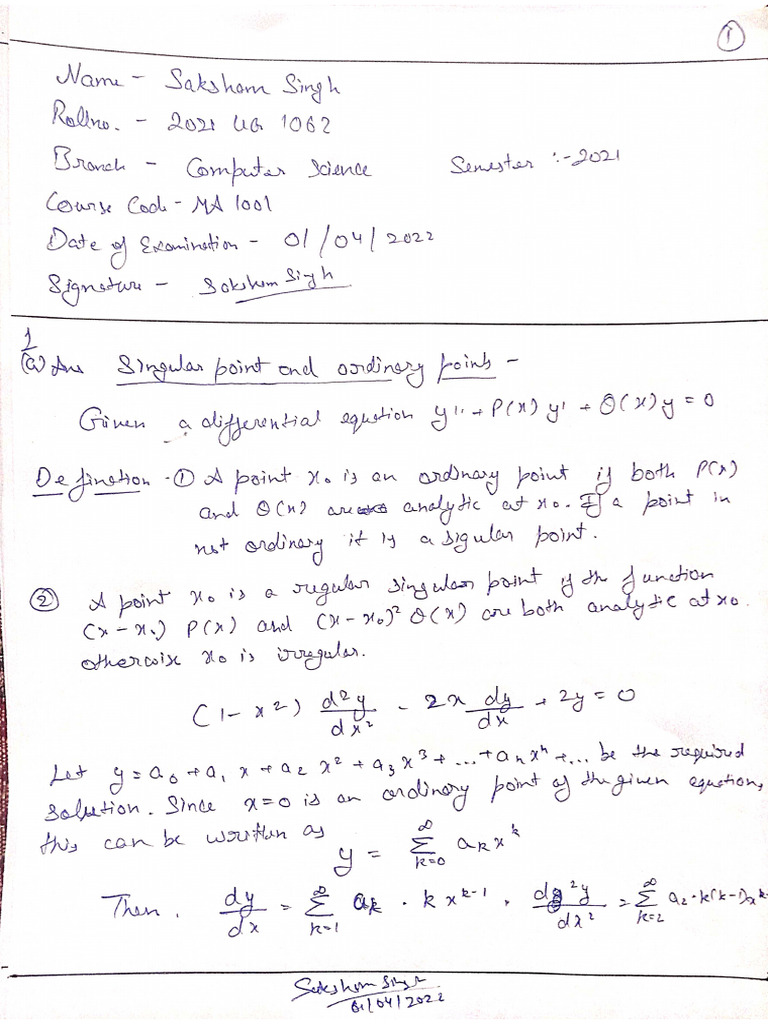 ①
Name - Saksham Singh
Rollno. - 2021 UG 1062
Branch - Computer Science Semester :- 2021
Course Code - MA 1001
Date of Examination - 01/04/2022
Signature - Saksham Singh
1
(a) Ans Singular point and ordinary points -
Given a differential equation y'' + P(x) y' + Q(x) y = 0
Defination - ① A point x₀ is an ordinary point if both P(x)
and Q(x) are analytic at x₀. If a point in
not ordinary it is a sigular point.
② A point x₀ is a regular singular point if the function
(x - x₀) P(x) and (x - x₀)² Q(x) are both analytic at x₀.
otherwise x₀ is irregular.
(1 - x²) d²y/dx² - 2x dy/dx + 2y = 0
Let y = a₀ + a₁ x + a₂ x² + a₃ x³ + ... + aₙ xⁿ + ... be the required
solution. Since x = 0 is an ordinary point of the given equation,
this can be written as
y = ∑_{k=0}^{∞} aₖ xᵏ
Then, dy/dx = ∑_{k=1}^{∞} aₖ · k x^{k-1}, d²y/dx² = ∑_{k=2}^{∞} a₂ · k(k-1) x^{k-
Saksham Singh
01/04/2022